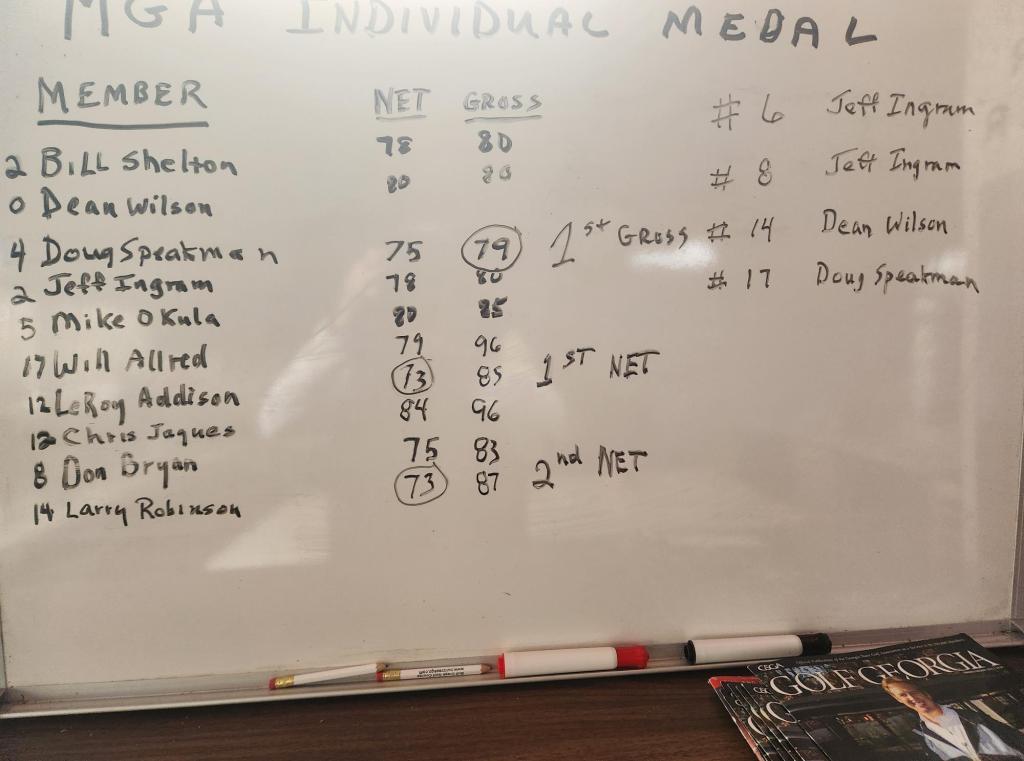 MGA INDIVIDUAL MEDAL
MEMBER NET GROSS
2 Bill Shelton 78 80
0 Dean Wilson 80 80
4 Doug Speakman 75 79 1st GROSS
2 Jeff Ingram 78 80
5 Mike O Kula 80 85
17 Will Allred 79 96
12 LeRoy Addison 73 85 1ST NET
12 Chris Jaques 84 96
8 Don Bryan 75 83
14 Larry Robinson 73 87 2nd NET
# 6 Jeff Ingram
# 8 Jeff Ingram
# 14 Dean Wilson
# 17 Doug Speakman
GSGA
GOLF GEORGIA